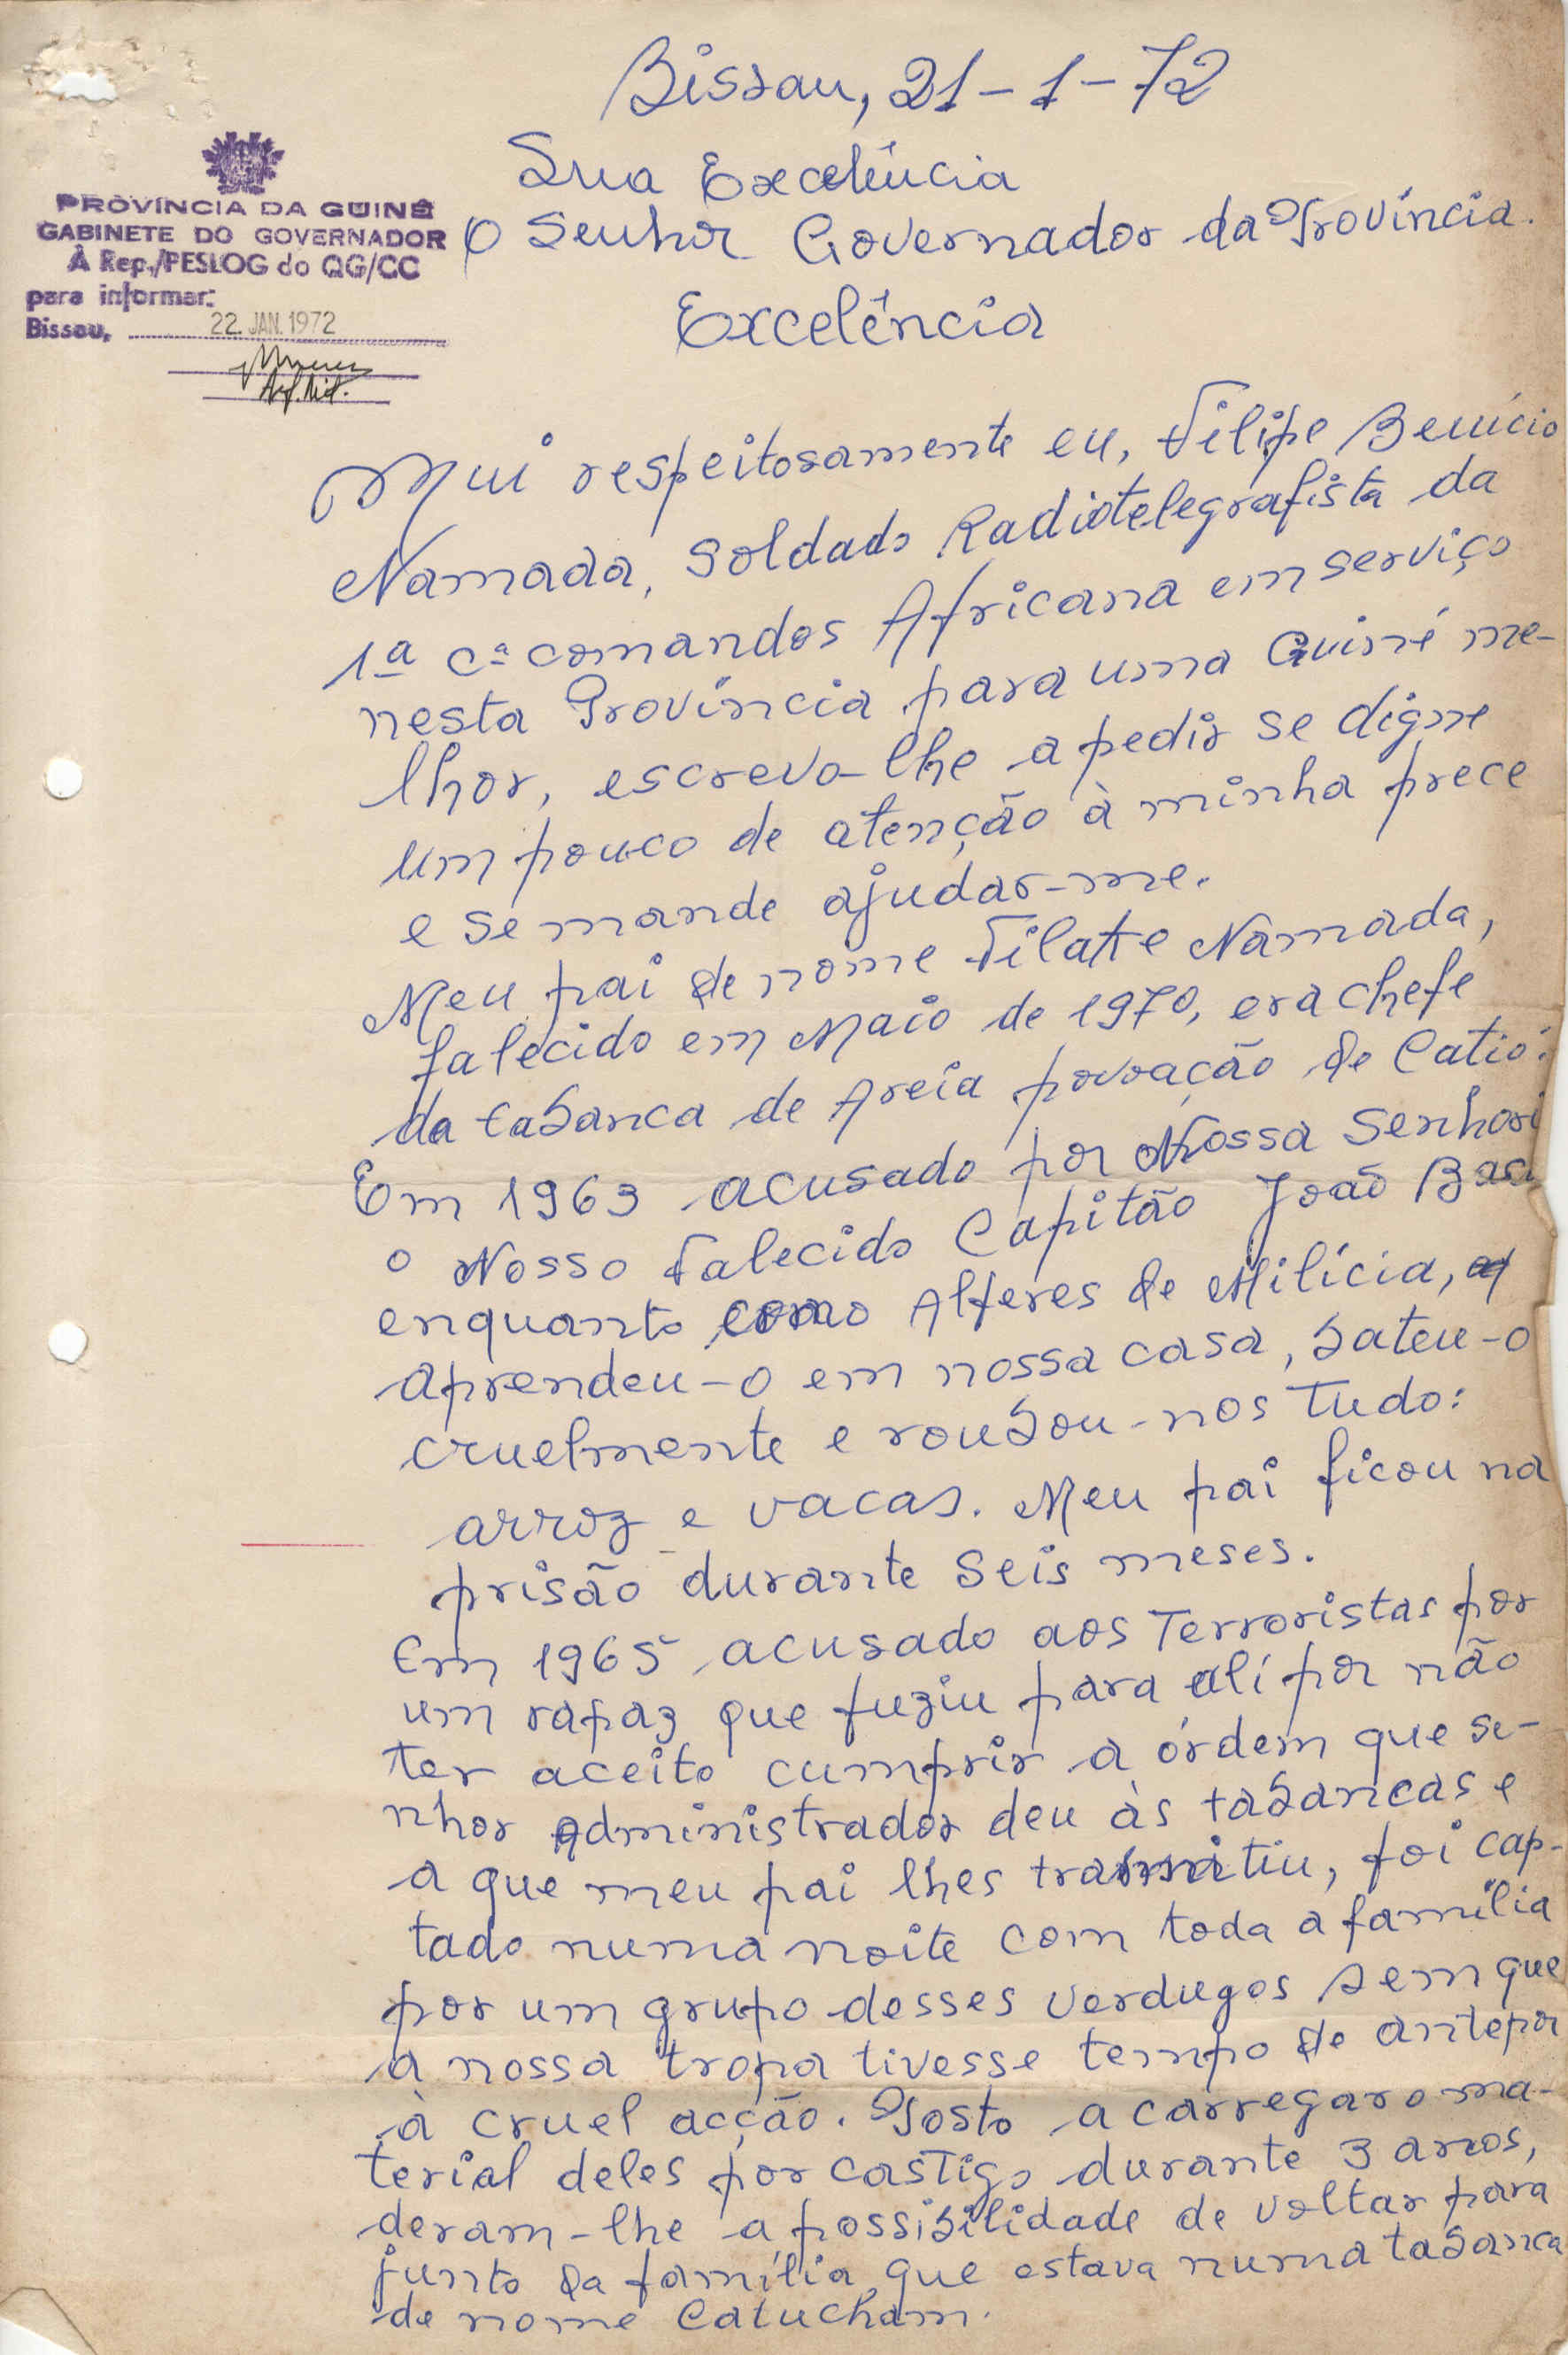 Bissau, 21-1-72
Sua Excelência
O Senhor Governador da Província.
Excelência
PROVÍNCIA DA GUINÉ
GABINETE DO GOVERNADOR
À Rep./PESLOG do QG/CC
para informar:
Bissau, 22. JAN. 1972
Mui respeitosamente eu, Filipe Benício
Namada, soldado Radiotelegrafista da
1ª Cª comandos Africana em serviço
nesta Província para uma Guiné me-
lhor, escrevo-lhe a pedir se digne
um pouco de atenção à minha prece
e se mande ajudar-me.
Meu pai de nome Filate Namada,
falecido em Maio de 1970, era chefe
da tabanca de Areia povoação de Catió.
Em 1963 acusado por Nossa
o Nosso Falecido Capitão João
enquanto como Alferes de Milícia,
aprendeu-o em nossa casa, bateu-o
cruelmente e roubou-nos tudo:
arroz e vacas. Meu pai ficou na
prisão durante seis meses.
Em 1965 acusado aos Terroristas por
um rapaz que fuziu para alí por não
ter aceito cumprir a órdem que se-
nhor administrador deu às tabancas e
a que meu pai lhes, foi cap-
tado numa noite com toda a família
por um grupo desses verdugos sem que
a nossa tropa tivesse tempo de antepor
à cruel acção. Posto a carregar o ma-
terial deles por castigo durante 3 anos,
deram-lhe a possibilidade de voltar para
junto da família que estava numa tabanca
de nome Catucham.